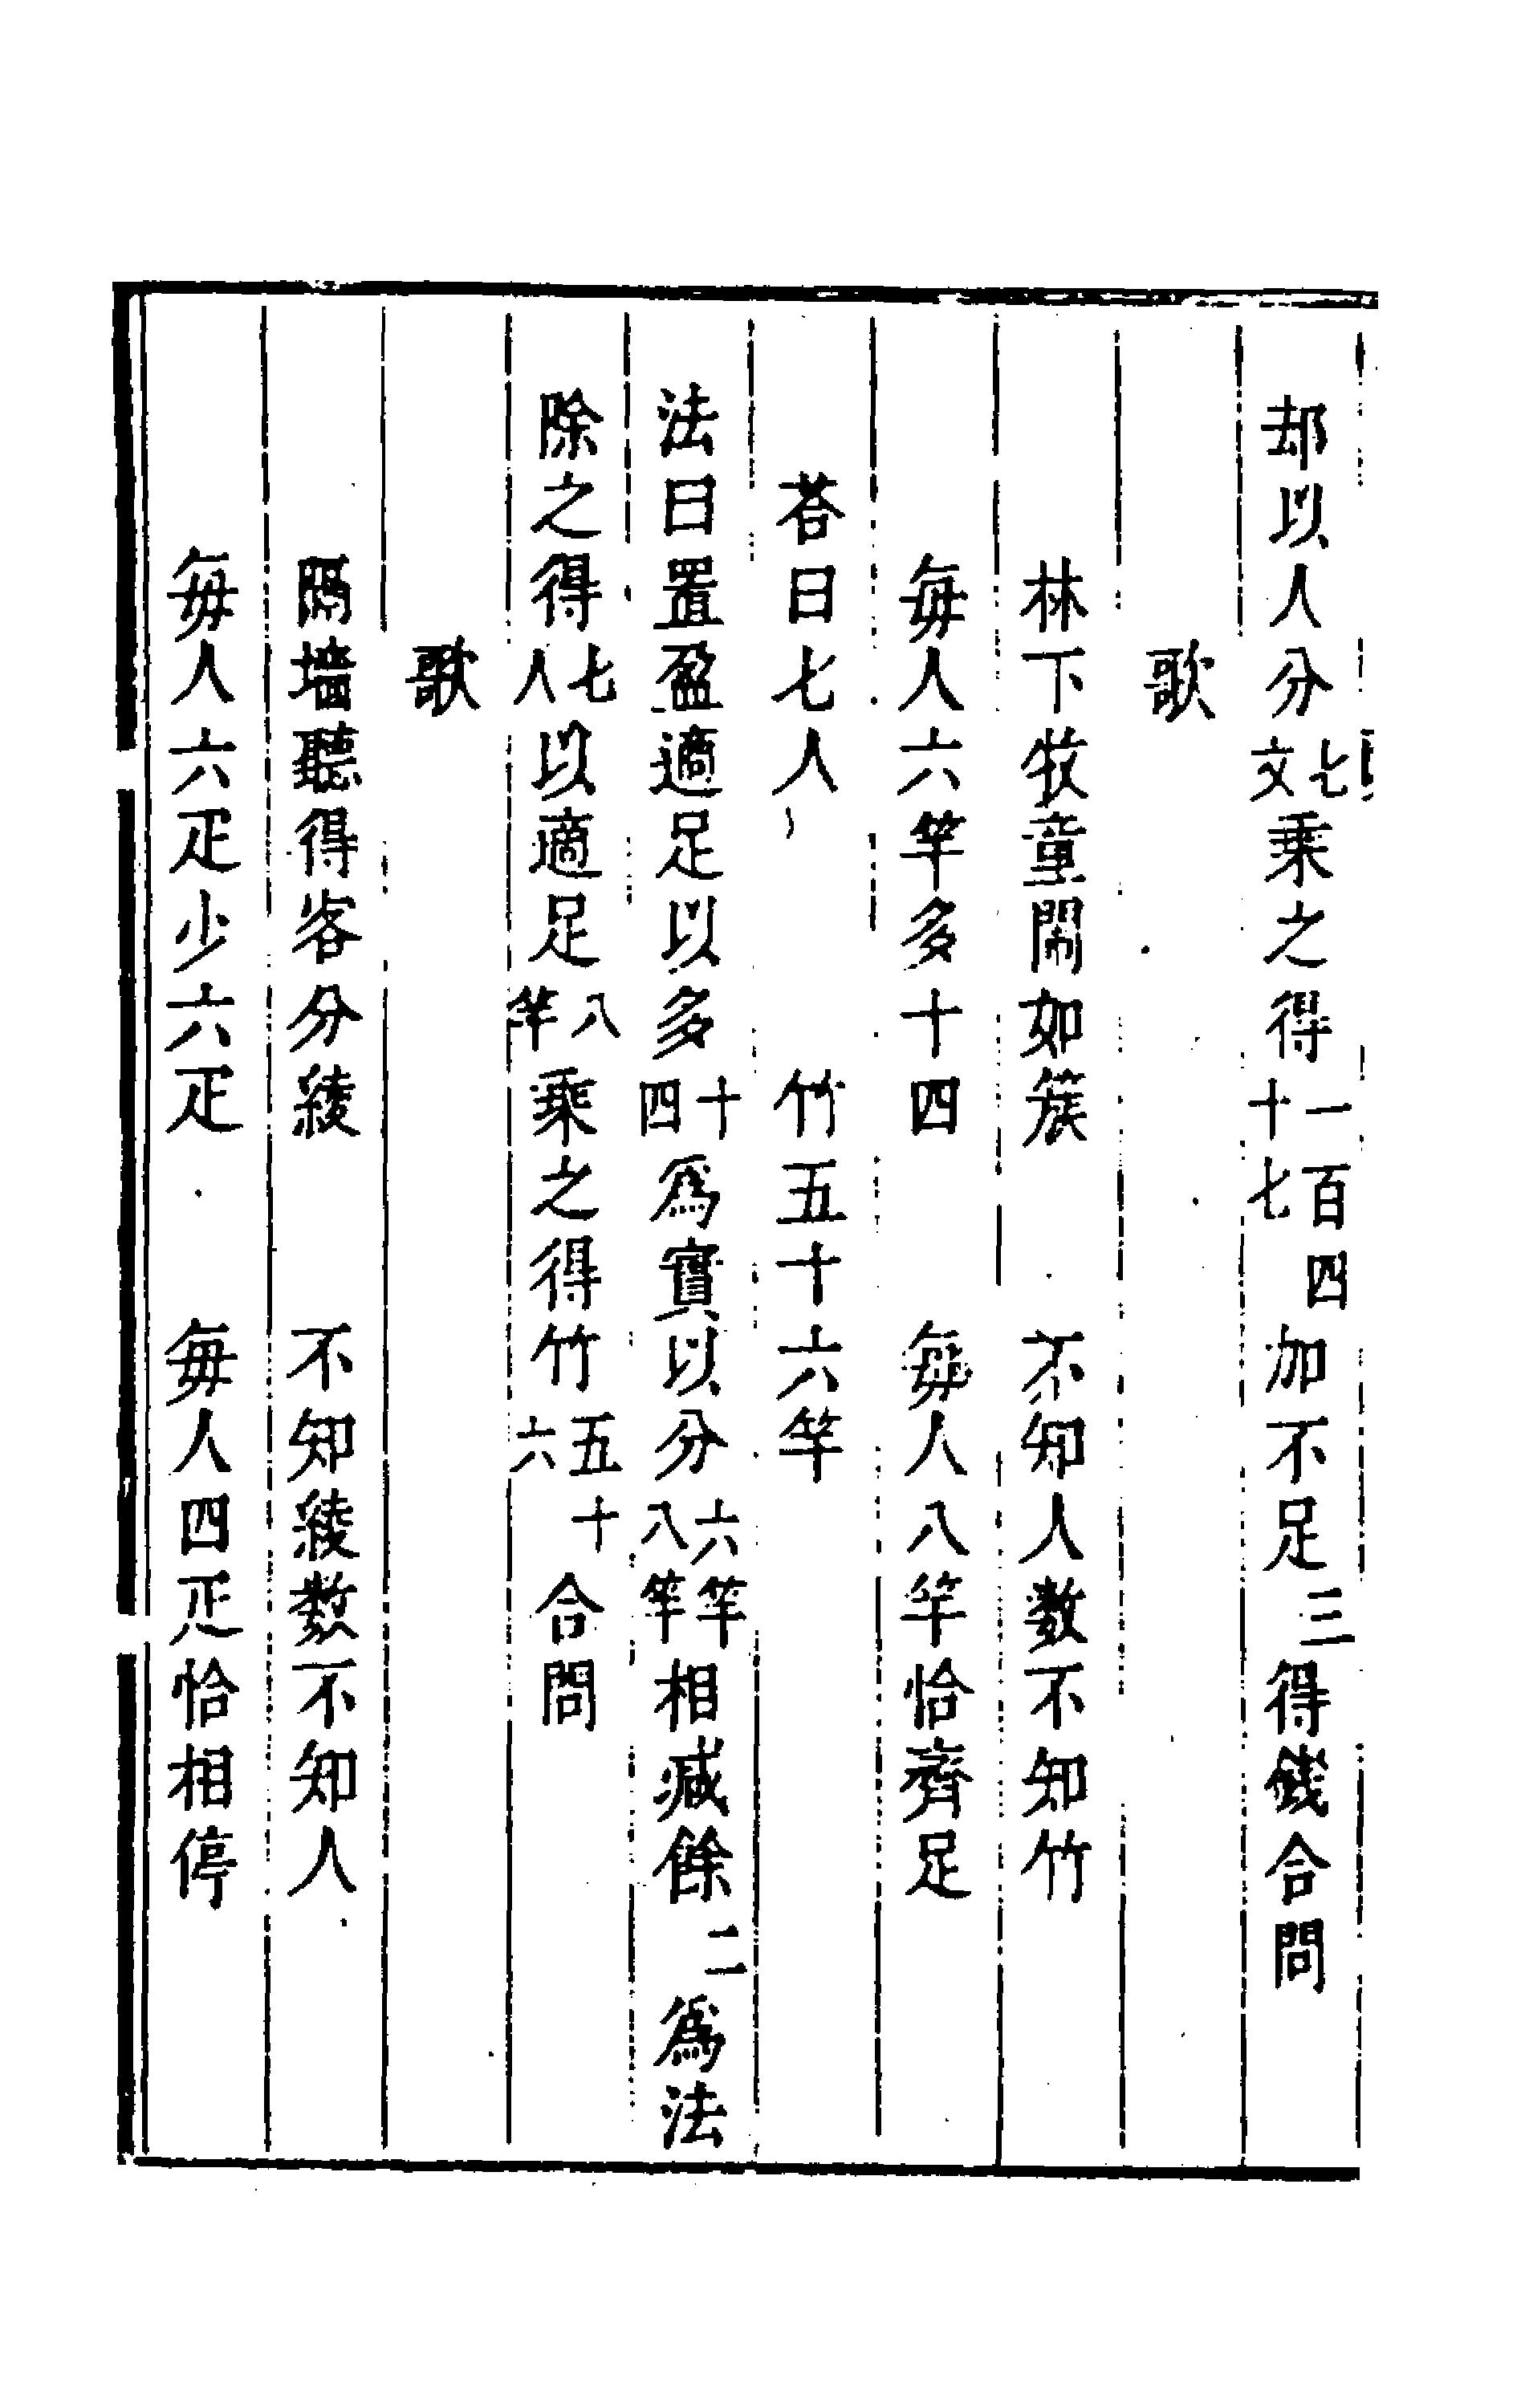 却以人分七文乗之得一百四十七加不足三得錢合問
歌
林下牧童閙如簇　不知人数不知竹
毎人六竿多十四　毎人八竿恰齊足
荅曰七人　竹五十六竿
法曰置盈適足以多十四爲實以分六竿八竿相减餘二爲法
除之得七人以適足八竿乗之得竹五十六合問
歌
隔墻聽得客分綾　不知綾数不知人
毎人六疋少六疋　毎人四疋恰相停